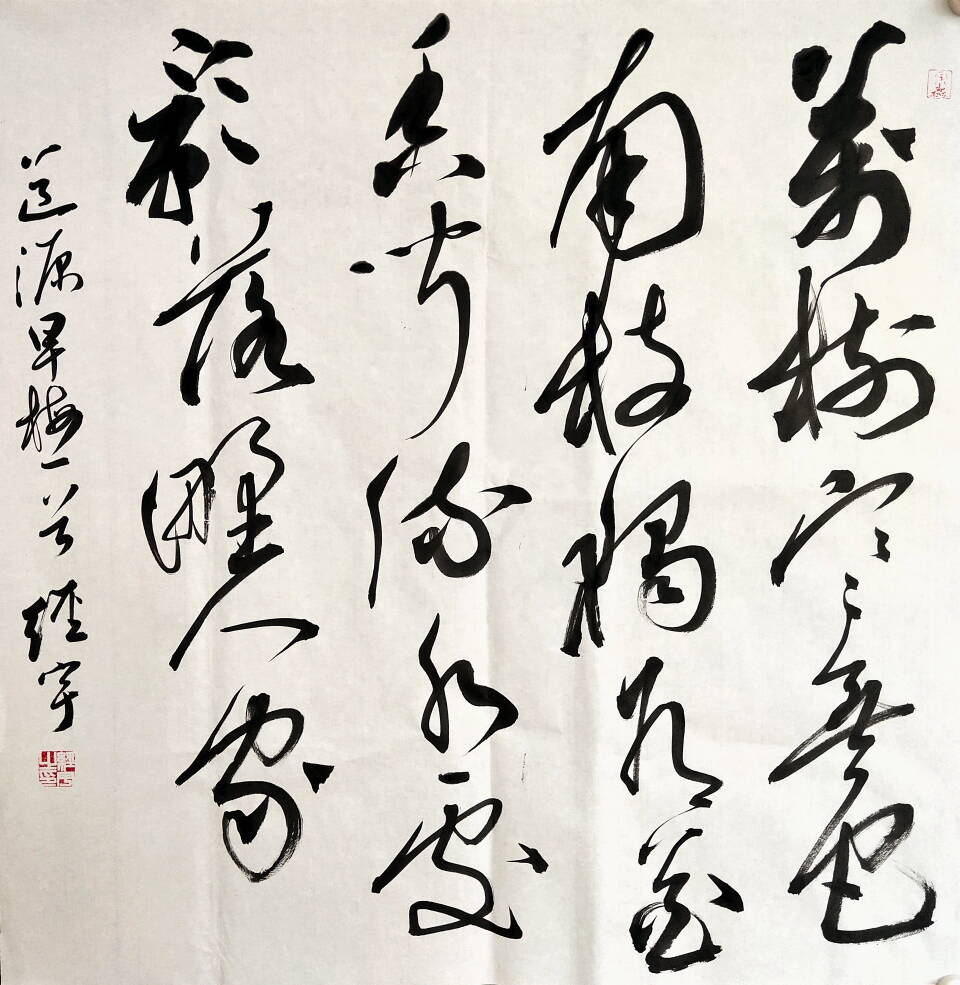 萬樹寒無色
南枝獨有花
香聞流水處
影落野人家
道源早梅一首 經宇